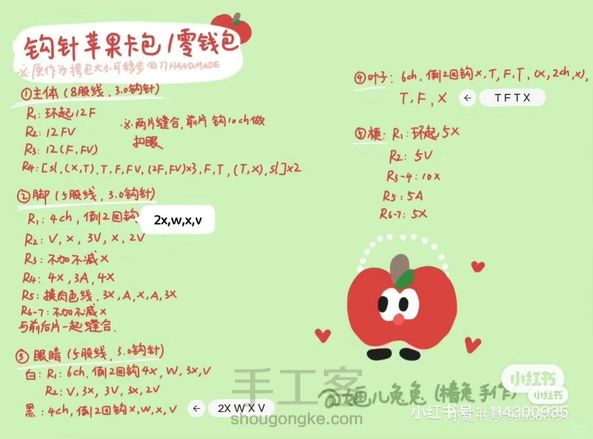 钩针苹果卡包/零钱包
※原作为挎包大小可移步@刀HANDMADE
①主体(8股线,3.0钩针)
R1:环起12F
R2:12FV
R3:12(F,FV)
R4:[sl,(x,T),T,F,FV,(2F,FV)×3,F,T,(T,X),sl]×2
※两片缝合,前片钩10ch做
扣眼
②脚(5股线,3.0钩针)
R1:4ch,倒2回钩 2x,w,x,v
R2:V,x,3V,x,2V
R3:不加不减x
R4:4X,3A,4X
R5:换肉色线,3X,A,X,A,3X
R6-7:不加不减x
与前后片一起缝合.
③眼睛(5股线,3.0钩针)
白:R1:6ch,倒2回钩4X,W,3X,V
R2:V,3X,3V,3x,2V
黑:4ch,倒2回钩x,w,x,v ← 2X W X V
④叶子:6ch,倒2回钩x,T,F,T,(x,2ch,x),
T,F,X ← T F T X
⑤梗:R1:环起5X
R2:5V
R3-4:10x
R5:5A
R6-7:5X
手工客
shougongke.com
兔兔(棒兔手作)
小红书
小红书
小红书号: